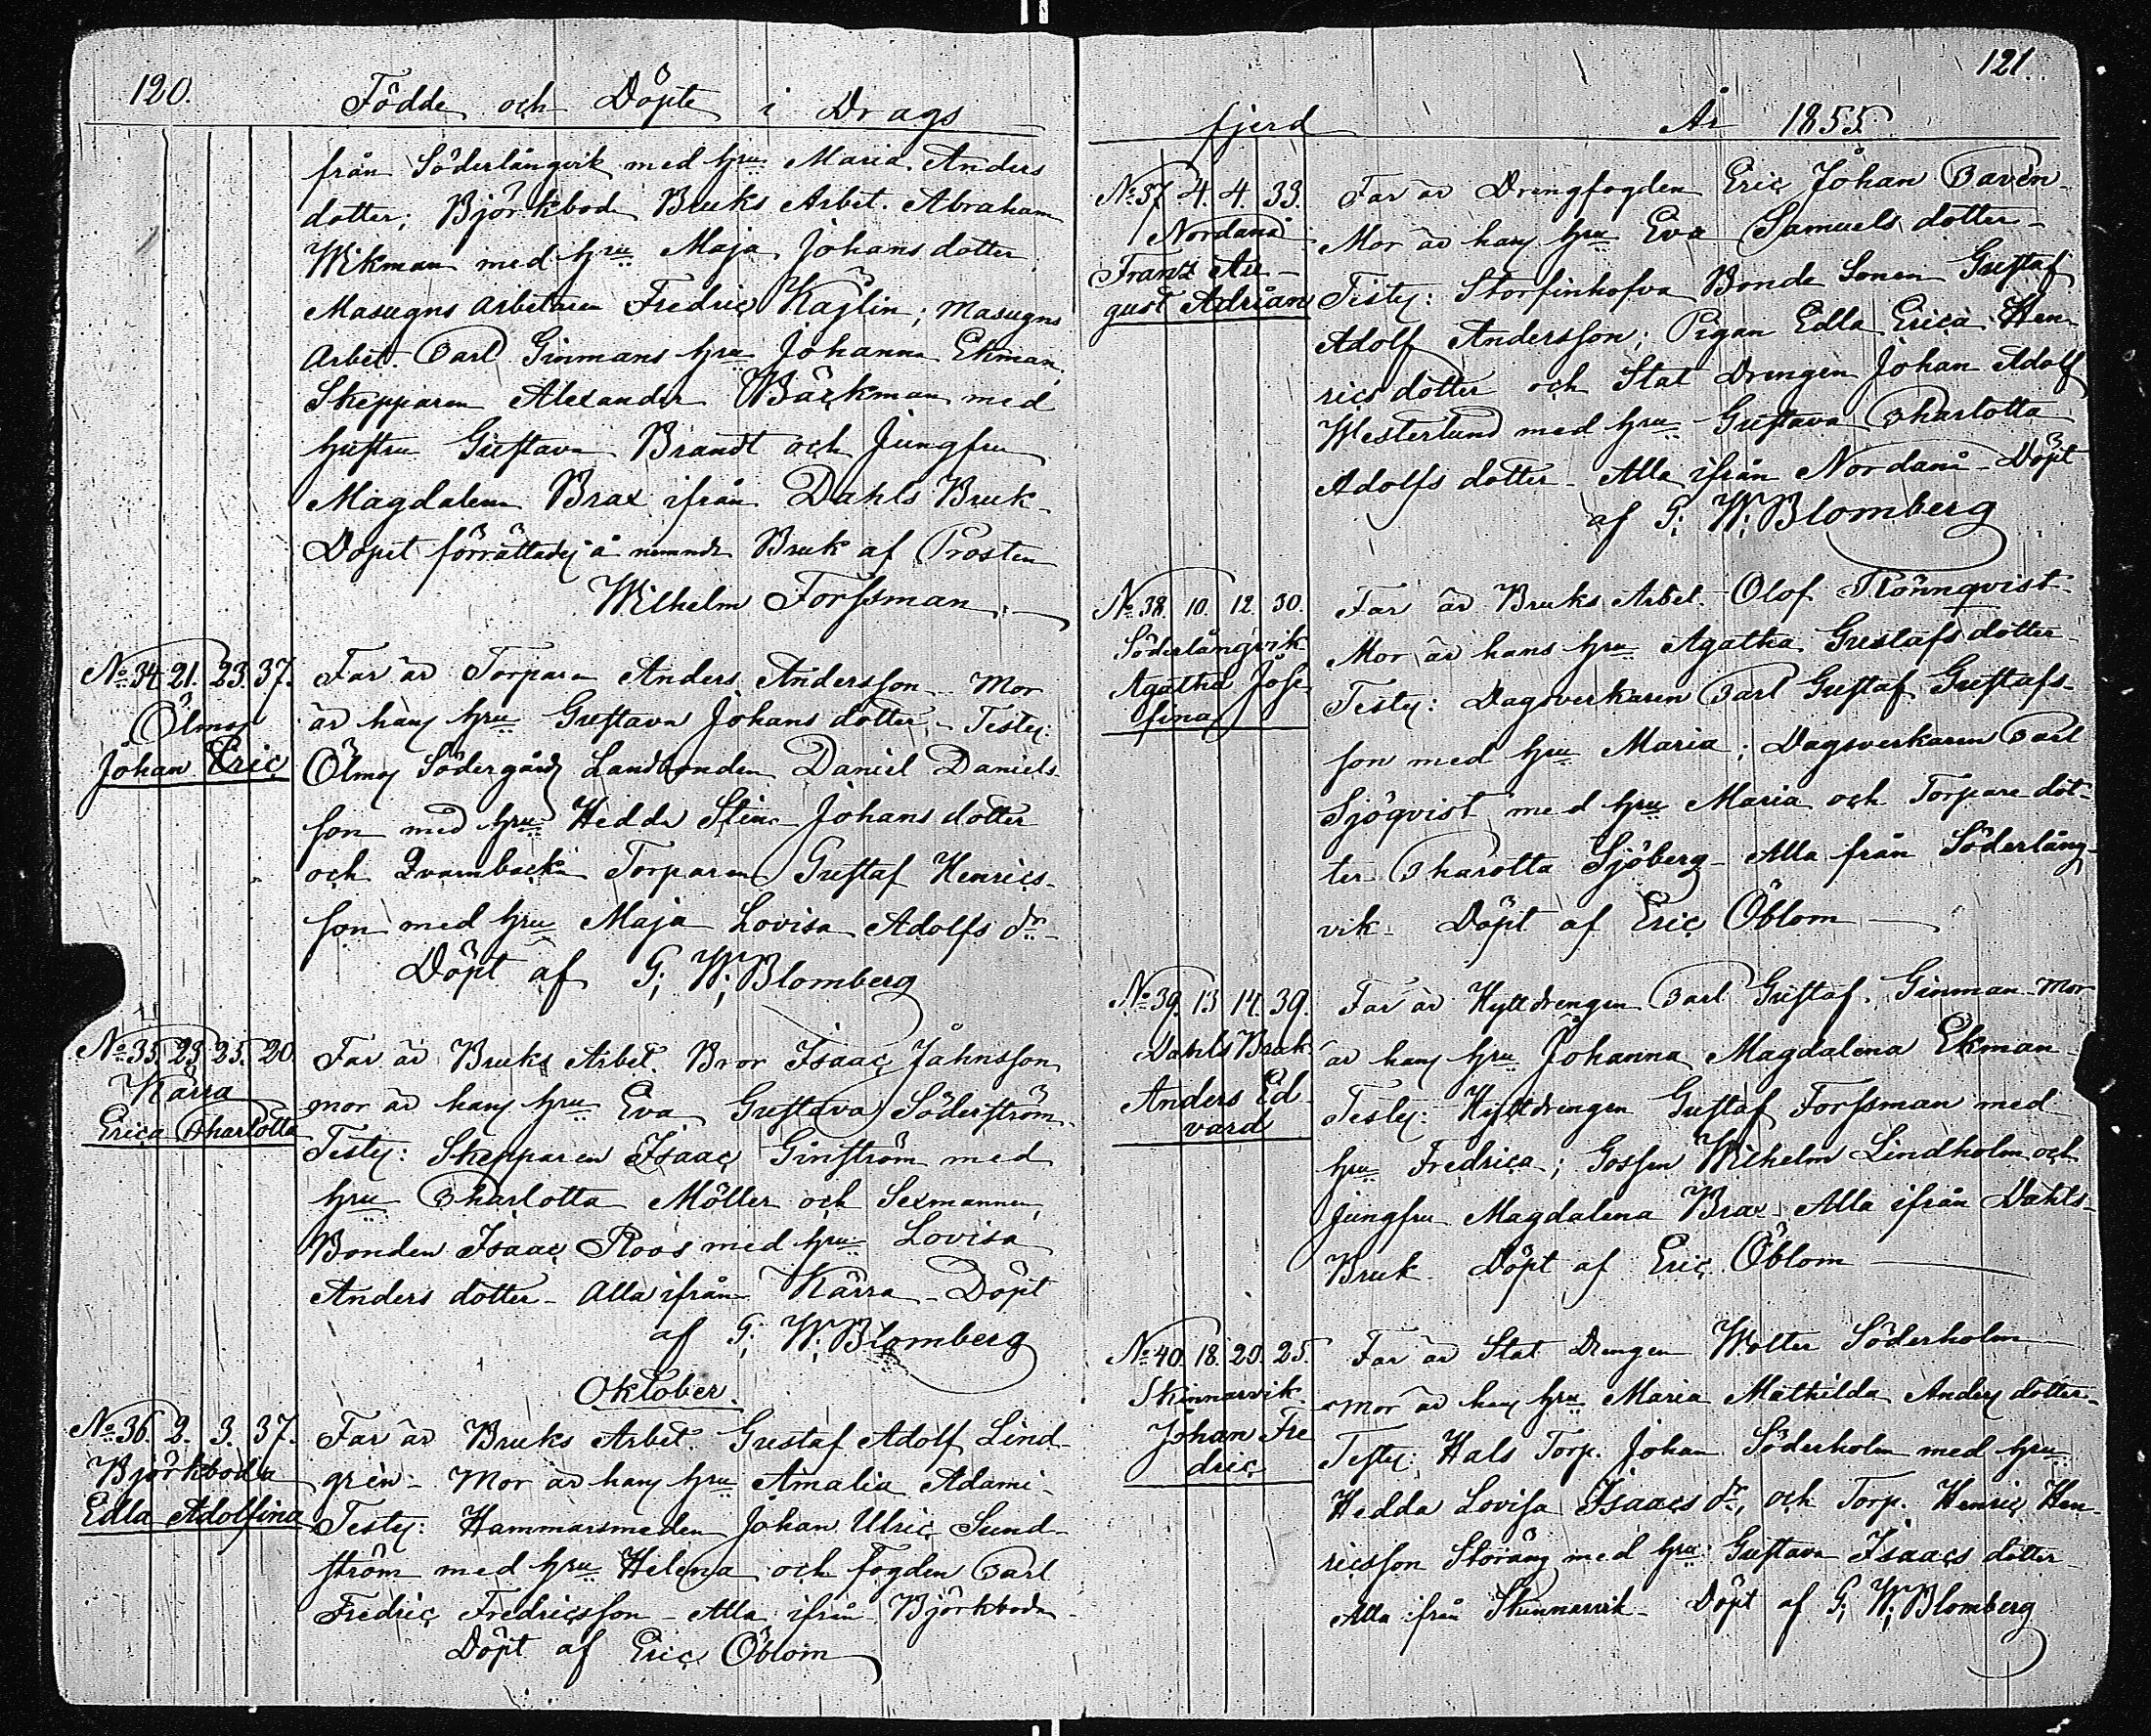 120.
Födde och Döpte i Drags
från Söderlångvik med hru Maria Anders
dotter; Björkboda Bruks Arbet. Abraham
Wikman med hru Maja Johans dotter
Masugns Arbetaren Fredric Kajlin; Masugns
Arbet. Carl Ginmans hru Johanna Ekman,
Skepparen Alexander Wäckman med
hustru Gustava Brandt och Jungfru
Magdalena Brax ifrån Dahls Bruk-
Dopet förrättades å nemnde Bruk af Prosten
Wilhelm Forssman.
No 34. 21. 23. 37.
Ölmos
Johan Eric
Far är Torparen Anders Andersson Mor
är hans hru Gustava Johans dotter- Testes:
Ölmos Södergårds Landbonden Daniel Daniels-
son med hru Hedda Stina Johans dotter
och Qvarnbacka Torparen Gustaf Henrics-
son med hru Maja Lovisa Adolfs dr-
Döpt af G; W; Blomberg
No 35. 23. 25. 20.
Kärra
Erica Charlotta
Far är Bruks Arbet. Bror Isaac Jahnsson
mor är hans hru Eva Gustava Söderström-
Testes: Skepparen Isaac Ginström med
hru Charlotta Möller och Sexmannen,
Bonden Isaac Roos med hru Lovisa
Anders dotter- Alla ifrån Kärra- Döpt
af G; W; Blomberg
Oktober.
No 36. 2. 3. 37.
Björkboda
Edla Adolfina
Far är Bruks Arbet. Gustaf Adolf Lind-
grén- Mor är hans hru Amalia Adami-
Testes: Hammarsmeden Johan Ulric Sund-
ström med hru Helena och Fogden Carl
Fredric Fredricsson- Alla ifrån Björkboda-
Döpt af Eric Öblom
121.
fjerd År 1855.
No 37. 4. 4. 33.
Nordanå
Frantz Au-
gust Adrian
Far är Drengfogden Eric Johan Cavén-
Mor är hans hru Eva Samuels dotter-
Testes: Storfinhofva Bonde Sonen Gustaf
Adolf Andersson; Pigan Edla Erica Hen-
rics dotter och Stat Drengen Johan Adolf
Westerlund med hru Gustava Charlotta
Adolfs dotter- Alla ifrån Nordanå- Döpt
af G; W; Blomberg
No 38. 10. 12. 30.
Söderlångvik
Agatha Jose-
fina
Far är Bruks Arbet. Olof Rönnqvist-
Mor är hans hru Agatha Gustafs dotter-
Testes: Dagsverkaren Carl Gustaf Gustafs-
son med hru Maria; Dagsverkaren Carl
Sjöqvist med hru Maria och Torpare dot-
ter Charotta Sjöberg- Alla från Söderlång-
vik- Döpt af Eric Öblom
No 39. 13. 14. 39.
Dahls Bruk
Anders Ed-
vard
Far är Hyttdrengen Carl Gustaf Ginman- Mor
är hans hru Johanna Magdalena Ekman-
Testes: Hyttdrengen Gustaf Forssman med
hru Fredrica; Gossen Wilhelm Lindholm och
Jungfru Magdalena Brax. Alla ifrån Dahls-
Bruk- Döpt af Eric Öblom
No 40. 18. 20. 25.
Skinnarvik
Johan Fre
dric
Far är Stat Drengen Wolter Söderholm
Mor är hans hru Maria Mathilda Anders dotter-
Testes: Hals Torp. Johan Söderholm med hru
Hedda Lovisa Isaacs dr, och Torp. Henric Hen-
ricsson Storäng med hru Gustava Isaacs dotter-
Alla ifrån Skinnarvik- Döpt af G; W; Blomberg